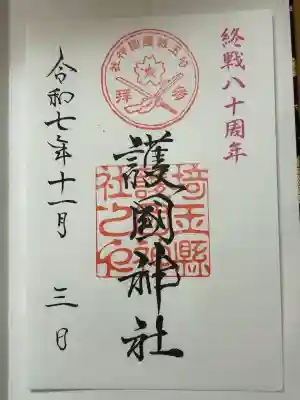 終戦八十周年
参拝
護國神社
埼玉縣
護國神
社之印
令和七年十一月三日